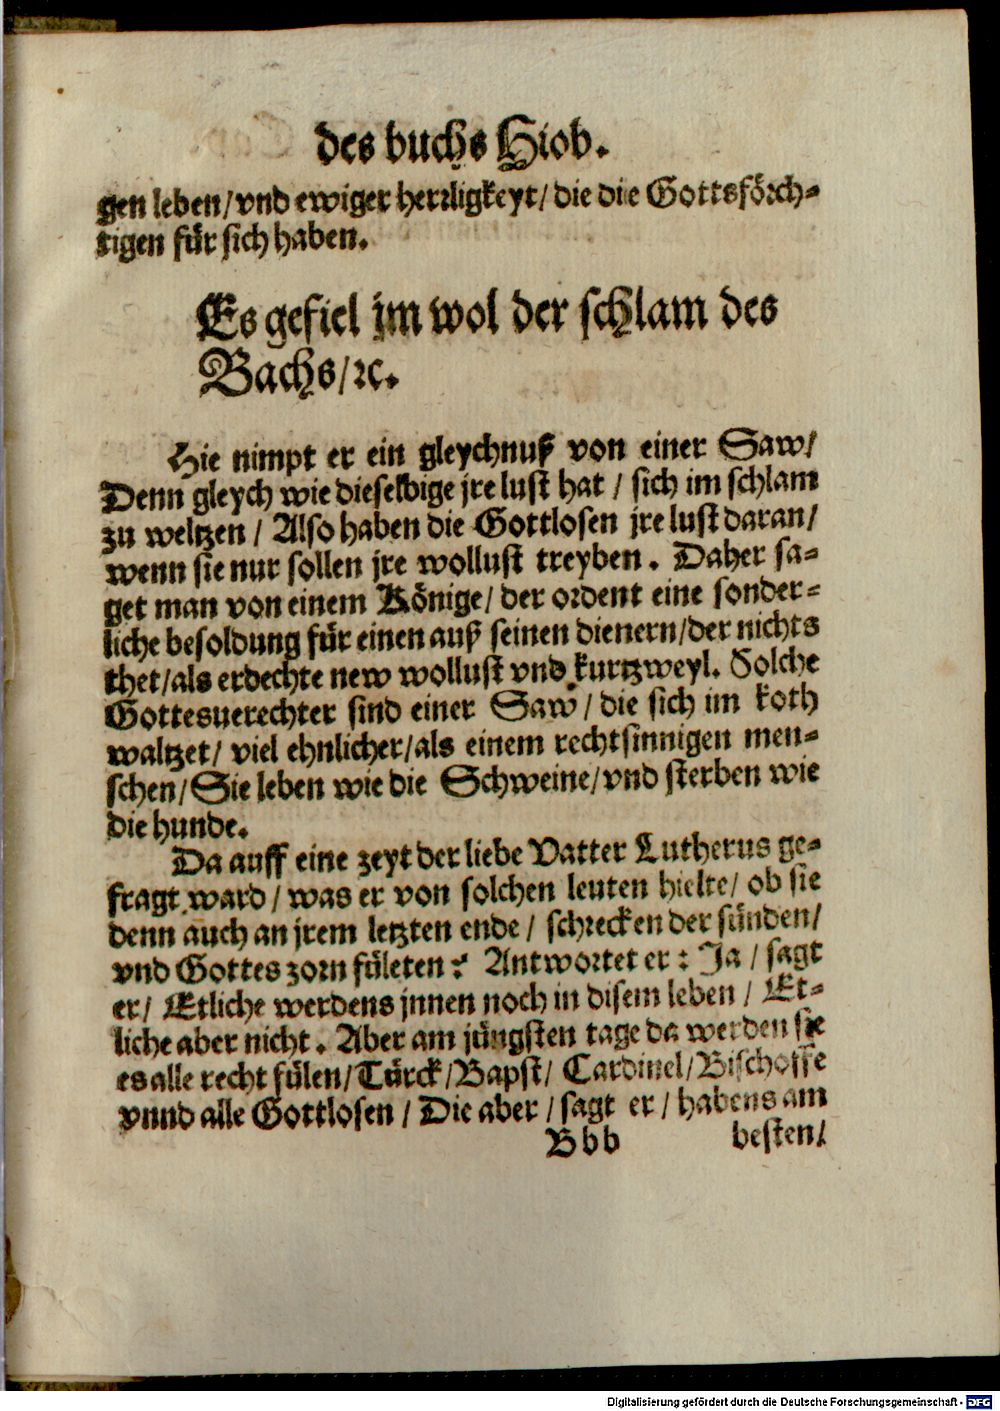 des buchs Hiob.
gen leben/ vnd ewiger herrligkeyt/ die die Gottsförch-
tigen für sich haben.
Es gefiel jm wol der schlam des
Bachs/ ꝛc.
Hie nimpt er ein gleychnuß von einer Saw/
Denn gleych wie dieselbige jre lust hat / sich im schlam
zu weltzen / Also haben die Gottlosen jre lust daran/
wenn sie nur sollen jre wollust treyben. Daher sa-
get man von einem Könige/ der ordent eine sonder-
liche besoldung für einen auß seinen dienern/der nichts
thet/als erdechte new wollust vnd kurtzweyl. Solche
Gottesuerechter sind einer Saw/ die sich im koth
waltzet/ viel ehnlicher/als einem rechtsinnigen men-
schen/ Sie leben wie die Schweine/vnd sterben wie
die hunde.
Da auff eine zeyt der liebe Vatter Lutherus ge-
fragt ward / was er von solchen leuten hielte/ ob sie
denn auch an jrem letzten ende / schrecken der sünden/
vnd Gottes zorn fületen? Antwortet er: Ja / sagt
er/ Etliche werdens jnnen noch in disem leben / Et-
liche aber nicht. Aber am jüngsten tage da werden sie
es alle recht fülen/ Türck/ Bapst/ Cardinel/ Bischoffe
vnnd alle Gottlosen / Die aber / sagt er/ habens am
Bbb besten/
Digitalisierung gefördert durch die Deutsche Forschungsgemeinschaft - DFG